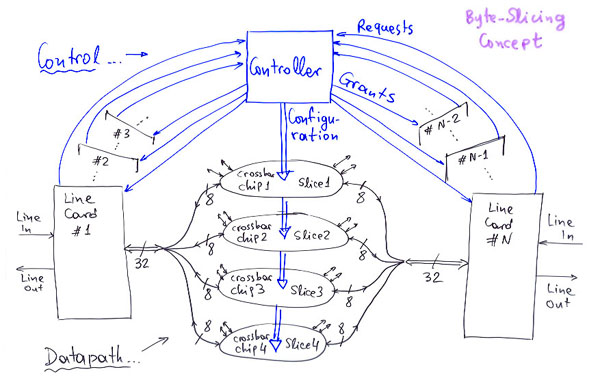 Byte-Slicing
Concept
Requests
Control ...
Controller
Grants
Configu-
ration
#3
#2
# N-2
# N-1
Line
Card
#1
Line
In
Line
Out
32
crossbar
chip1 Slice1
8
8
crossbar
chip2 Slice2
8
8
crossbar
chip3 Slice3
8
8
crossbar
chip4 Slice4
8
8
32
Line
Card
#N
Line
In
Line
Out
Datapath...